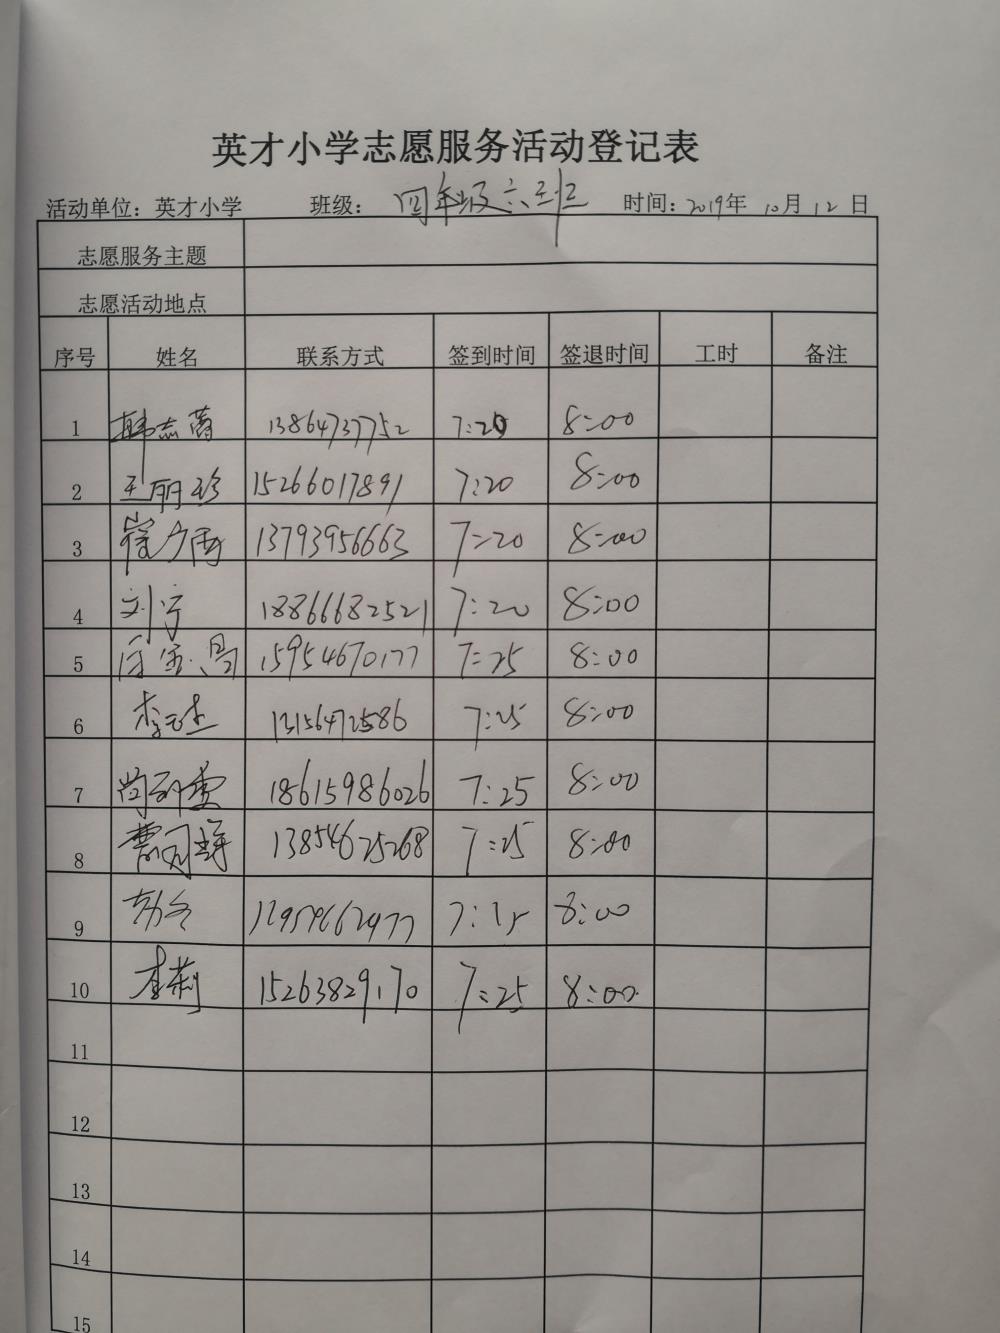 英才小学志愿服务活动登记表
活动单位：英才小学 班级：四年级六班 时间：2019年 10月 12 日
志愿服务主题
志愿活动地点
序号 姓名 联系方式 签到时间 签退时间 工时 备注
1 韩志 13864737752 7:20 8:00
2 王丽珍 15266017891 7:20 8:00
3 崔 13793956663 7:20 8:00
4 刘宁 18866682521 7:20 8:00
5 15954670177 7:25 8:00
6 李 13156472586 7:25 8:00
7 尚 18615986026 7:25 8:00
8 曹 13854625268 7:25 8:00
9 7:25 8:00
10 李莉 15263829170 7:25 8:00
11
12
13
14
15